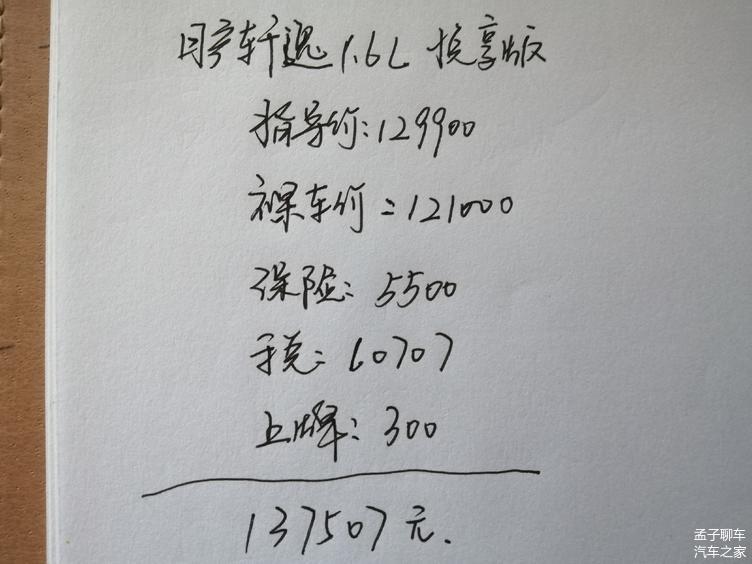 日产轩逸1.6L 悦享版
指导价:129900
裸车价:121000
保险:5500
税:10707
上牌:300
137507元.
孟子聊车
汽车之家